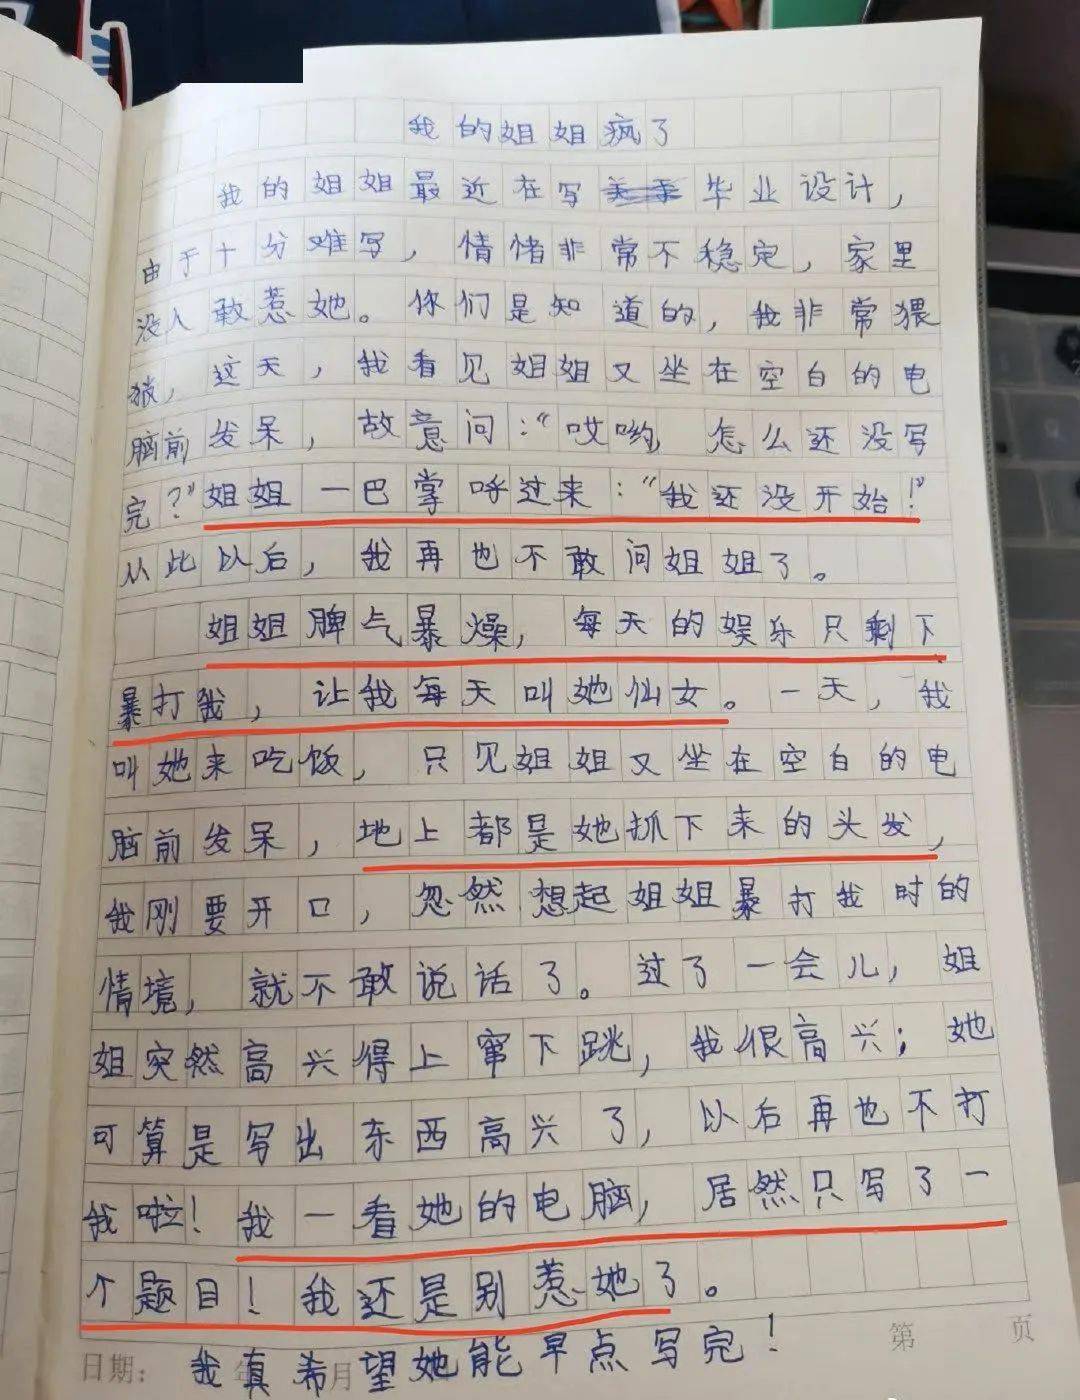 我的姐姐疯了
我的姐姐最近在写毕业设计，
由于十分难写，情绪非常不稳定，家里
没人敢惹她。你们是知道的，我非常猥
猥，这天，我看见姐姐又坐在空白的电
脑前发呆，故意问：“哎哟，怎么还没写
完？”姐姐一巴掌呼过来：“我还没开始！”
从此以后，我再也不敢问姐姐了。
姐姐脾气暴燥，每天的娱乐只剩下
暴打我，让我每天叫她仙女。一天，我
叫她来吃饭，只见姐姐又坐在空白的电
脑前发呆，地上都是她抓下来的头发，
我刚要开口，忽然想起姐姐暴打我时的
情境，就不敢说话了。过了一会儿，姐
姐突然高兴得上窜下跳，我很高兴；她
可算是写出东西高兴了，以后再也不打
我啦！我一看她的电脑，居然只写了一
个题目！我还是别惹她了。
我真希望她能早点写完！
日期： 年 月 第 页